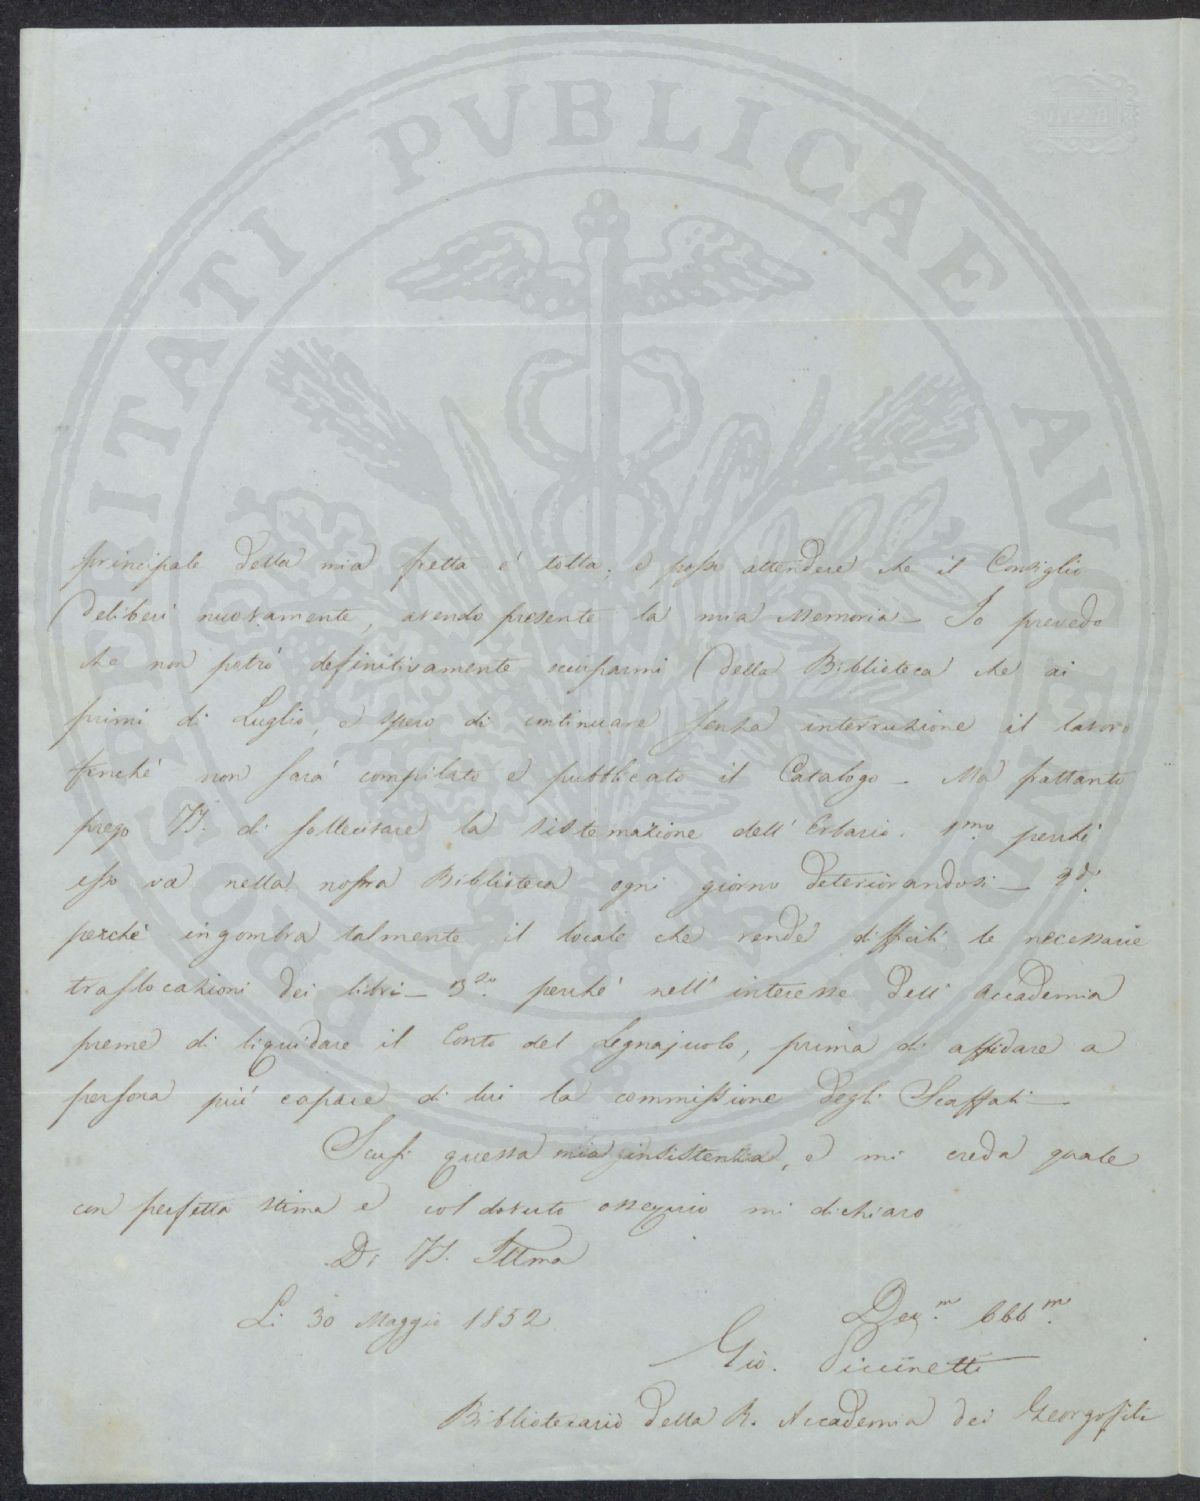 PROSPERITATI PVBLICAE AVGENDAE
principale della mia fretta è tolta; e posso attendere che il Consiglio
deliberi nuovamente, avendo presente la mia Memoria — Io prevedo
che non potrò definitivamente occuparmi della Biblioteca che ai
primi di Luglio, e spero di continuare senza interruzione il lavoro
finchè non sarà compilato e pubblicato il Catalogo — Ma frattanto
prego VS. di sollecitare la sistemazione dell' Erbario. 1mo perchè
esso va nella nostra Biblioteca ogni giorno deteriorandosi — 2do.
perchè ingombra talmente il locale che rende difficili le necessarie
traslocazioni dei libri — 3zo. perchè nell' interesse dell' Accademia
preme di liquidare il Conto del Legnajuolo, prima di affidare a
persona più capace di lui la commissione degli Scaffali —
Scusi questa mia insistenza, e mi creda quale
con perfetta stima e col dovuto ossequio mi dichiaro
Di VS. Illma
Li 30 Maggio 1852
Dev.mo Obb.mo
Gio. Piccinetti
Bibliotecario della R. Accademia dei Georgofili